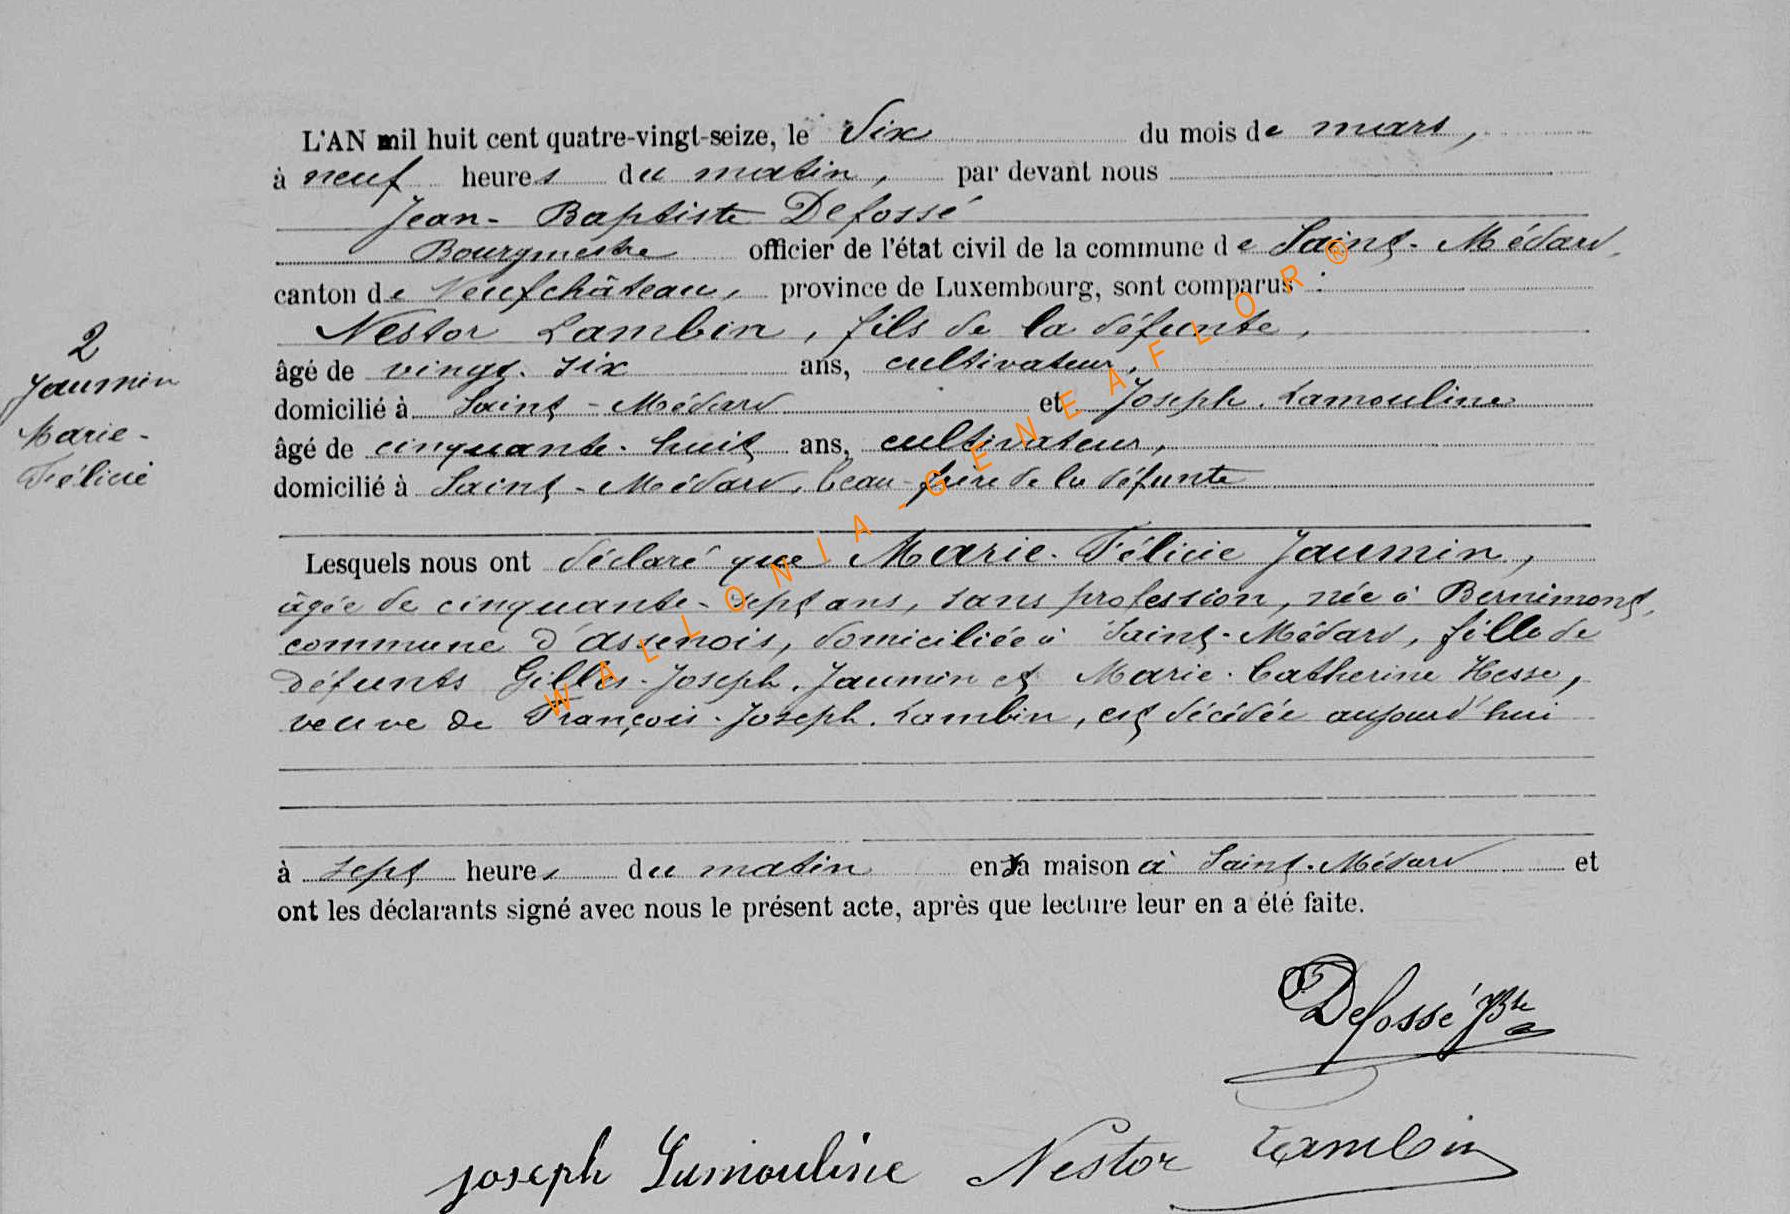 L'AN mil huit cent quatre-vingt-seize, le six du mois de mars,
à neuf heures du matin, par devant nous
Jean-Baptiste Defossé
Bourgmestre officier de l'état civil de la commune de Saint-Médard,
canton de Neufchâteau, province de Luxembourg, sont comparus :
Nestor Lambin, fils de la défunte,
âgé de vingt-six ans, cultivateur,
domicilié à Saint-Médard et Joseph Lamouline
âgé de cinquante-huit ans, cultivateur,
domicilié à Saint-Médard, beau-frère de la défunte
2
Jaumin
Marie-
Félicie
Lesquels nous ont déclaré que Marie-Félicie Jaumin,
âgée de cinquante-sept ans, sans profession, née à Bernimont,
commune d'Assenois, domiciliée à Saint-Médard, fille de
défunts Gilles-Joseph Jaumin et Marie-Catherine Hesse,
veuve de François-Joseph Lambin, est décédée aujourd'hui
à sept heures du matin en sa maison à Saint-Médard et
ont les déclarants signé avec nous le présent acte, après que lecture leur en a été faite.
Defossé JBte
Joseph Lamouline Nestor Lambin
WALLONIA-GENEAFLOR®